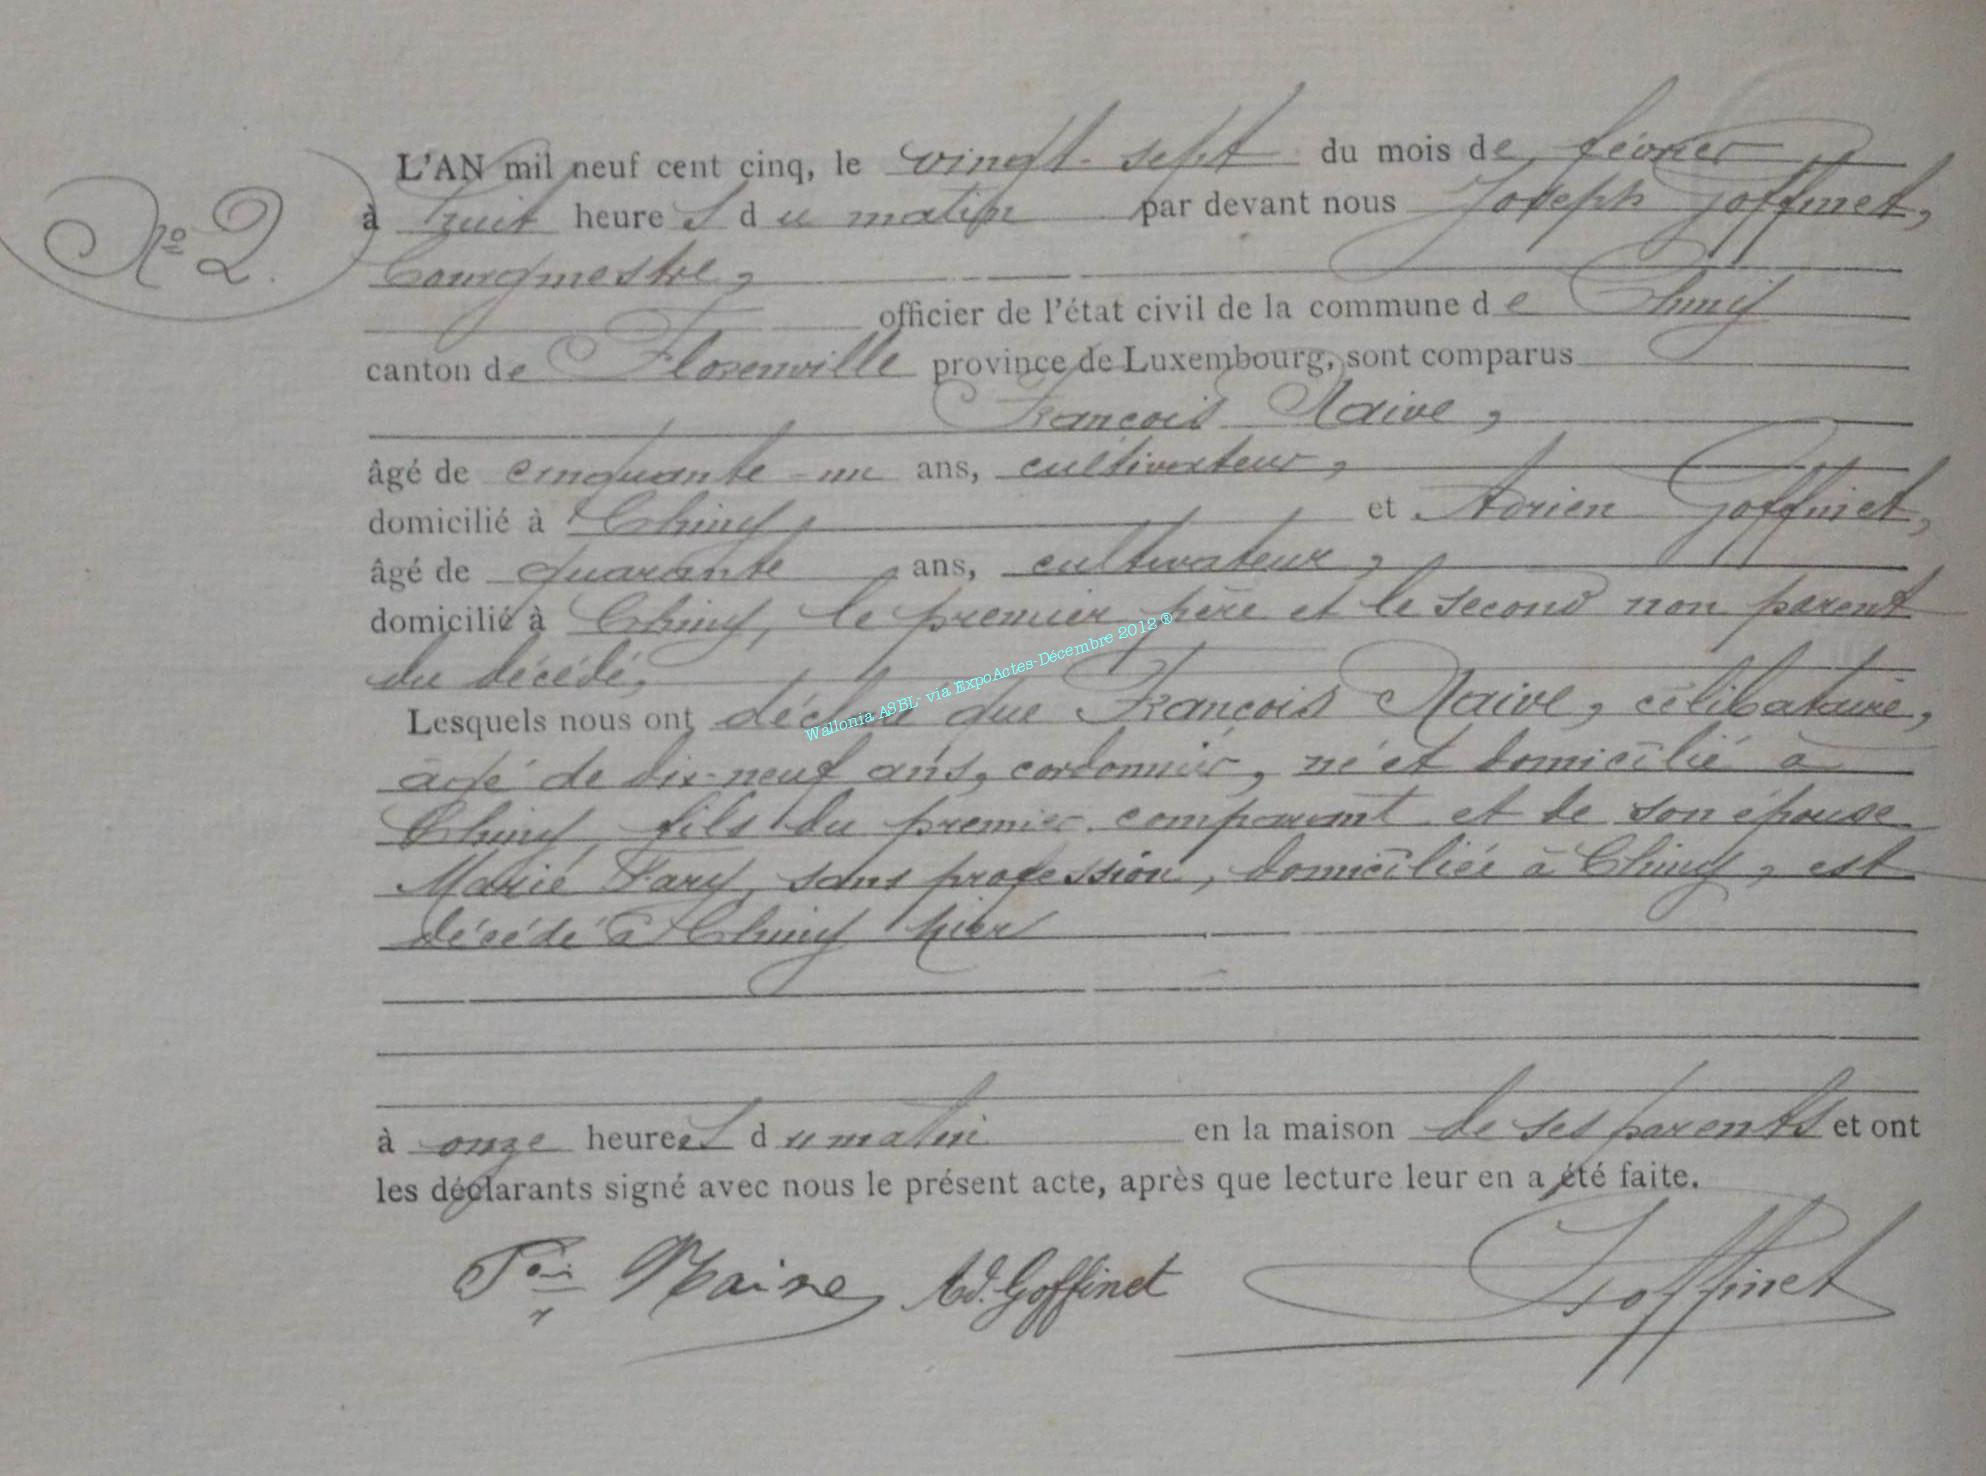 N° 2.
L'AN mil neuf cent cinq, le vingt-sept du mois de février
à huit heures du matin par devant nous Joseph Goffinet,
bourgmestre,
officier de l'état civil de la commune de Chiny
canton de Florenville province de Luxembourg, sont comparus
François Naive,
âgé de cinquante-un ans, cultivateur,
domicilié à Chiny, et Adrien Goffinet,
âgé de quarante ans, cultivateur,
domicilié à Chiny, le premier père et le second non parent
du décédé,
Lesquels nous ont déclaré que François Naive, célibataire,
âgé de dix-neuf ans, cordonnier, né et domicilié à
Chiny, fils du premier comparant et de son épouse
Marie Fary, sans profession, domiciliée à Chiny, est
décédé à Chiny hier
à onze heures du matin en la maison de ses parents et ont
les déclarants signé avec nous le présent acte, après que lecture leur en a été faite.
Naive Ad. Goffinet J Goffinet
Wallonia ASBL- via ExpoActes-Décembre 2012 ®